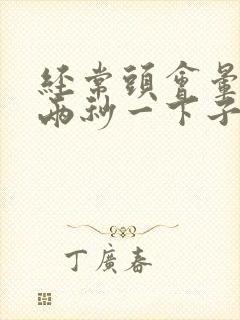 經常頭會暈
兩秒一下子
丁廣春